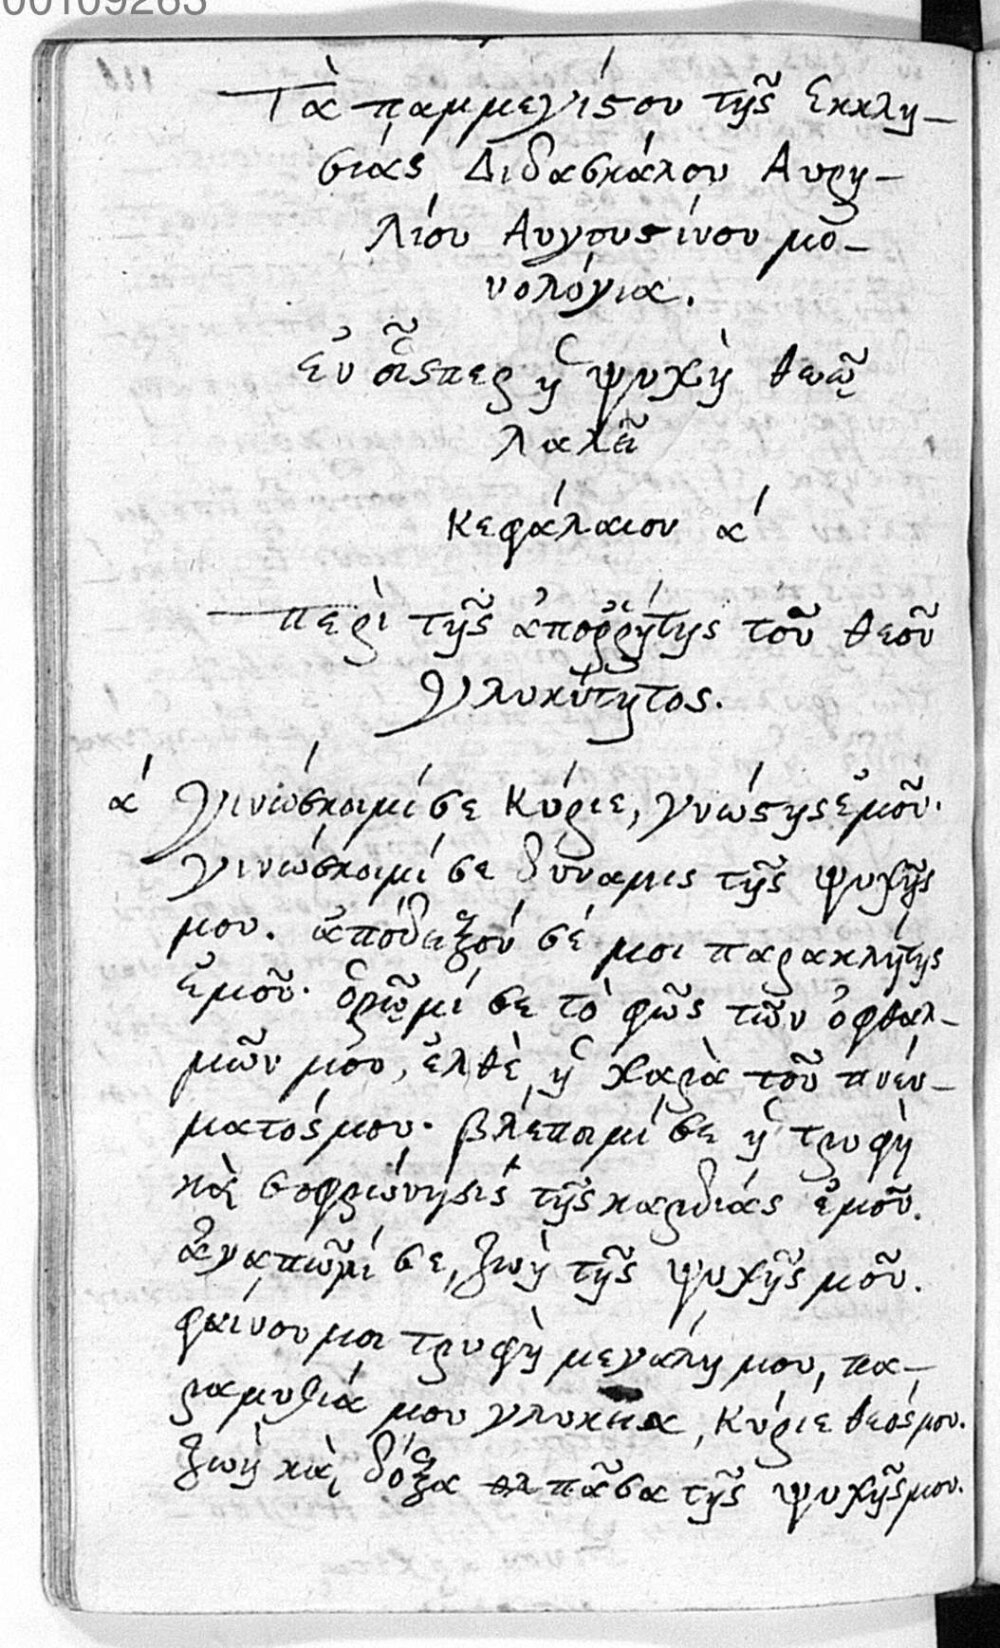 00109263
Τὰ παμμεγίστου τῆς Εκκλη-
σιάς Διδασκάλου Αυρη-
λίου Αυγουστίνου μο-
νολόγια.
ἐν οἷσπερ ἡ ψυχὴ θεῷ
λαλεῖ
Κεφάλαιον ά
Περὶ τῆς ἀποῤῥήτης τοῦ θεοῦ
γλυκύτητος.
ά γινώσκοιμί σε Κύριε, γνώστης ἐμοῦ.
γινώσκοιμί σε δύναμις τῆς ψυχῆς
μου. ἀπόδειξόν σέ μοι παρακλήτης
ἐμοῦ. ὁρῷμί σε τὸ φῶς τῶν ὀφθαλ-
μῶν μου, ἐλθὲ ἡ χαρὰ τοῦ πνέυ-
ματός μου. βλέποιμί σε ἡ τρυφὴ
καὶ σοφρώνησις τῆς καρδιάς ἐμοῦ.
ἀγαπῷμί σε, ζωὴ τῆς ψυχῆς μοῦ.
φαίνου μοι τρυφὴ μεγάλη μου, πα-
ραμυθιά μου γλυκεια, Κύριέ θεός μου.
ζωὴ καὶ δόξα πᾶσα τῆς ψυχῆς μου.